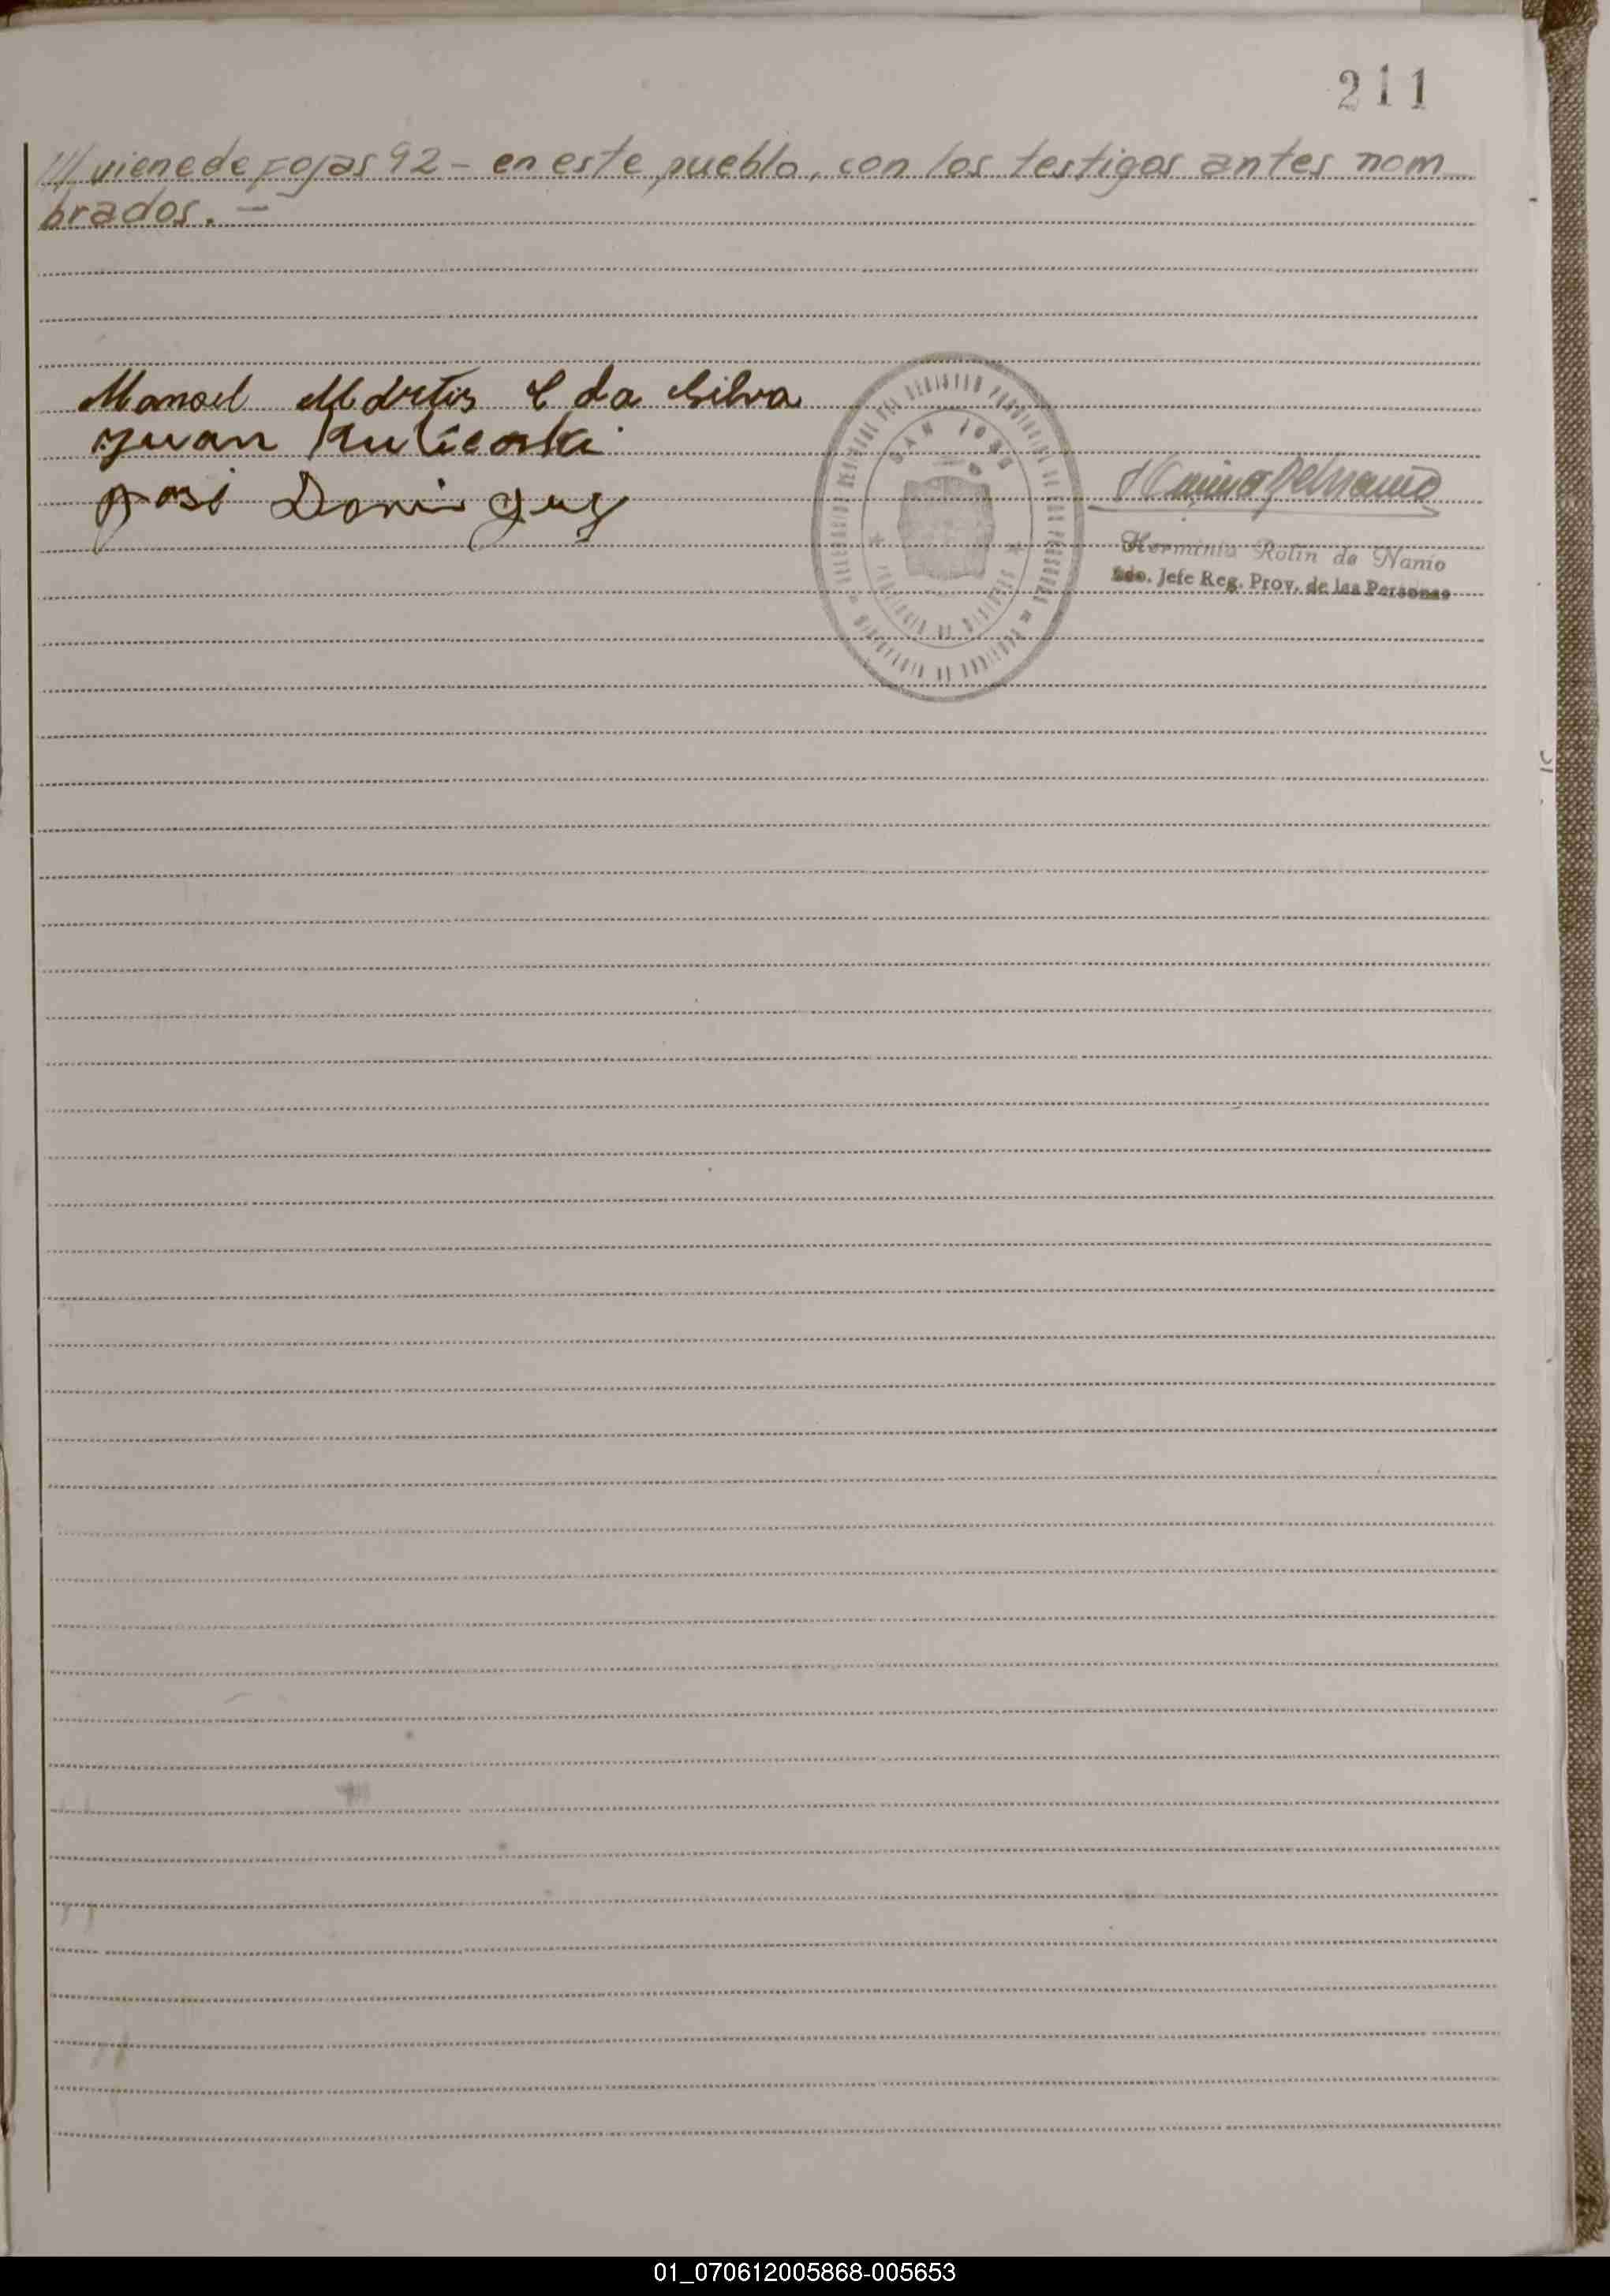 211
/// viene de Fojas 92 - en este pueblo, con los testigos antes nom
brados. -
Manoel Martis C da Silva
Juan
José Dominguez
SAN JOSE
Herminia Rolin de Nanio
Jefe Reg. Prov. de las Personas
01_070612005868-005653